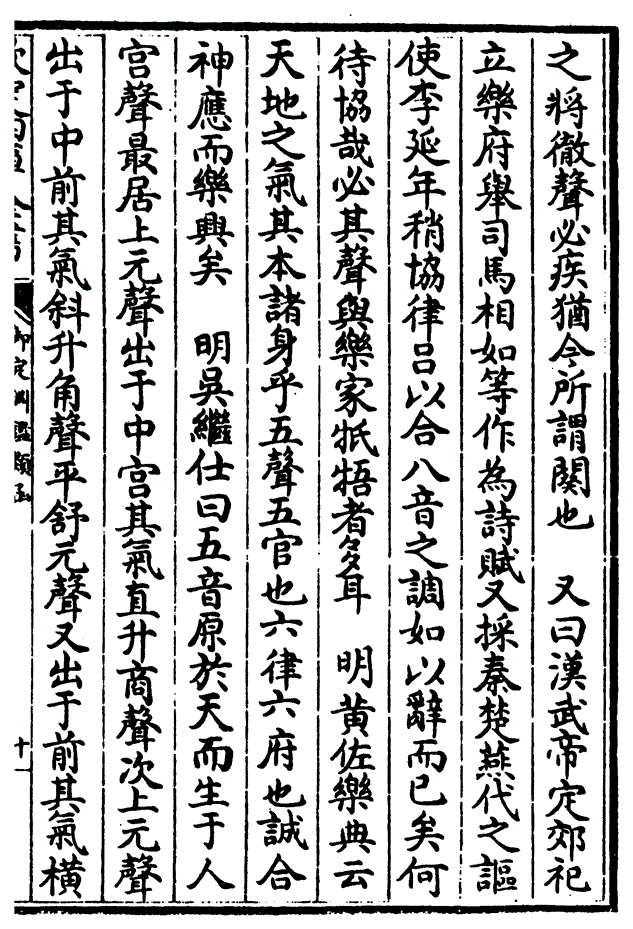 之將徹聲必疾猶今所謂闋也　又曰漢武帝定郊祀
立樂府舉司馬相如等作為詩賦又採秦楚燕代之謳
使李延年稍協律呂以合八音之調如以辭而已矣何
待協哉必其聲與樂家牴牾者多耳　明黄佐樂典云
天地之氣其本諸身乎五聲五官也六律六府也誠合
神應而樂興矣　明吳繼仕曰五音原於天而生于人
宫聲最居上元聲出于中宫其氣直升商聲次上元聲
出于中前其氣斜升角聲平舒元聲又出于前其氣橫
御定淵鑑類函
十一